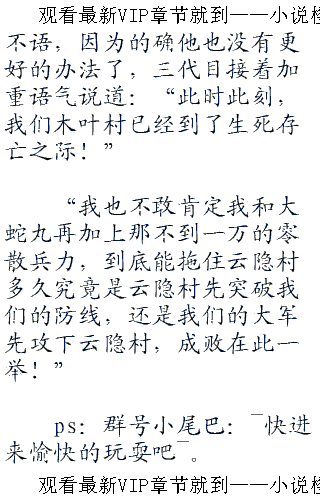 观看最新VIP章节就到——小说
不语，因为的确他也没有更
好的办法了，三代目接着加
重语气说道：“此时此刻，
我们木叶村已经到了生死存
亡之际！”
“我也不敢肯定我和大
蛇丸再加上那不到一万的零
散兵力，到底能拖住云隐村
多久究竟是云隐村先突破我
们的防线，还是我们的大军
先攻下云隐村，成败在此一
举！”
ps：群号小尾巴：¯快进
来愉快的玩耍吧¯。
观看最新VIP章节就到——小说